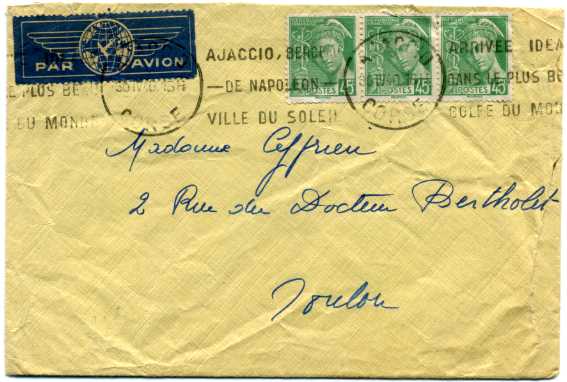 PAR AVION
AJACCIO, BERCEAU ARRIVÉE IDEA
DE NAPOLEON DANS LE PLUS BE
VILLE DU SOLEIL GOLFE DU MON
E PLUS BEAU
DU MONDE
CORSE
AJACCIO
CORSE
POSTES 45
POSTES 45
POSTES 45
Madame
2 Rue du Docteur Bertholet
Toulon